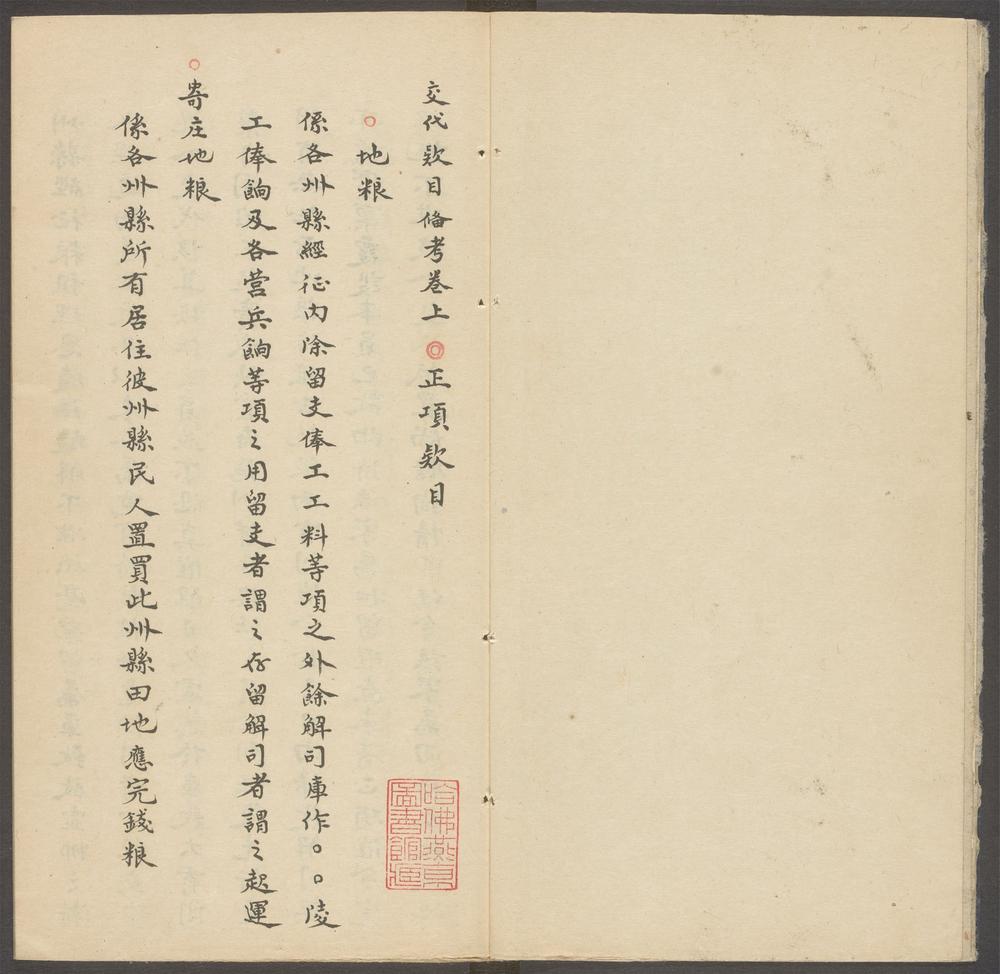 交代欵目備考卷上◎正項欵目
○地粮
係各州縣經征内除留支俸工工料等項之外餘解司庫作○○陵
工俸餉及各营兵餉等項之用留支者謂之存留解司者謂之起運
○寄庄地粮
係各州縣所有居住彼州縣民人置買此州縣田地應完錢粮
哈佛燕京
圖書館藏